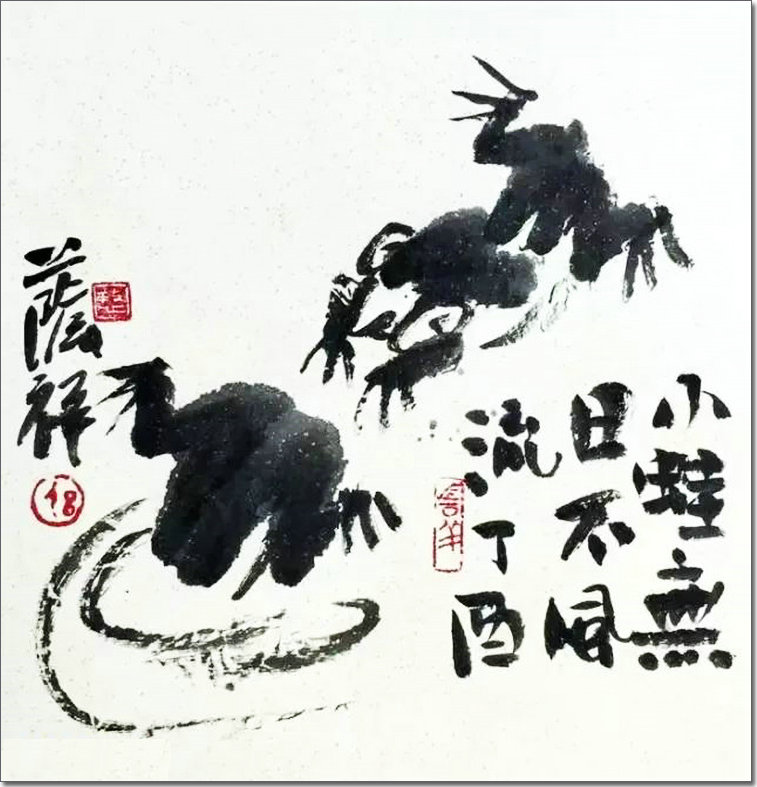 小蛙無
日不風
流丁酉
蔭祥